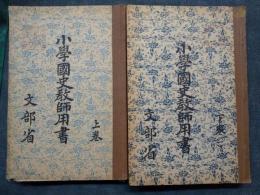 小學國史教師用書
上巻
文部省
小學國史教師用書
下巻
文部省